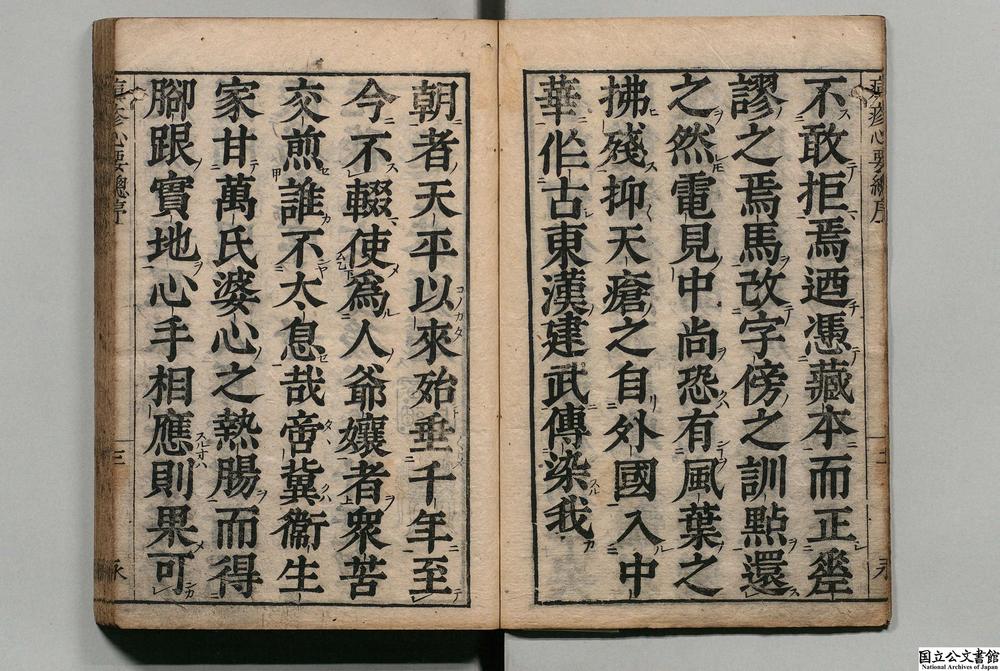 不敢拒焉迺憑藏本而正壂
謬之焉馬改字傍之訓點還
之然電見中尚恐有風葉之
拂殘抑天瘡之自外國入中
華伦古東漢建武傳染我
朝者天平以來殆垂千年至
今不輟使為人爺孃者衆苦
交煎誰不大息哉啻冀衞生
家甘萬氏婆心之熱腸而得
腳跟實地心手相應則果可
痘疹心要總序
三
国立公文書館
National Archives of Japan